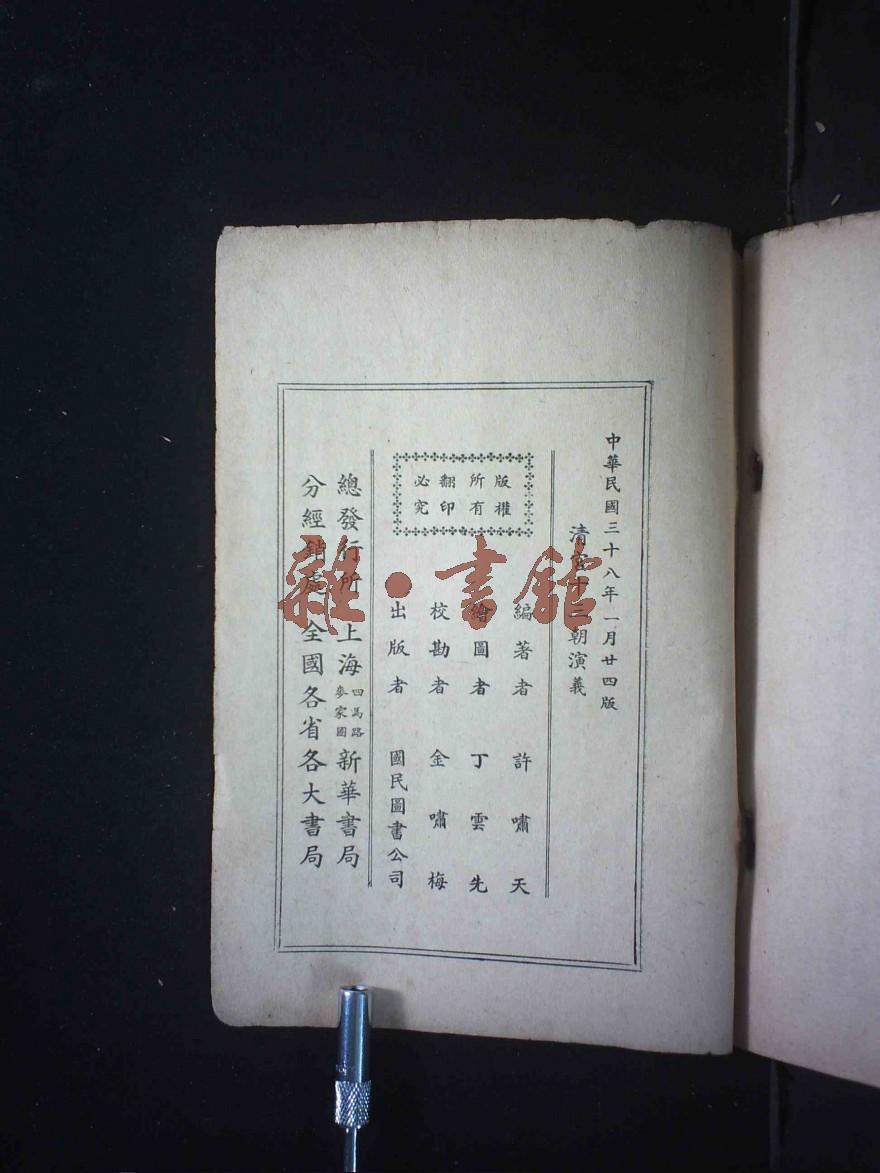 中華民國三十八年一月廿四版
清宮十三朝演義
編著者 許嘯天
繪圖者 丁雲先
校勘者 金嘯梅
出版者 國民圖書公司
版權
所有
翻印
必究
總發行所 上海四馬路麥家圈新華書局
分經銷處 全國各省各大書局
雜·書館